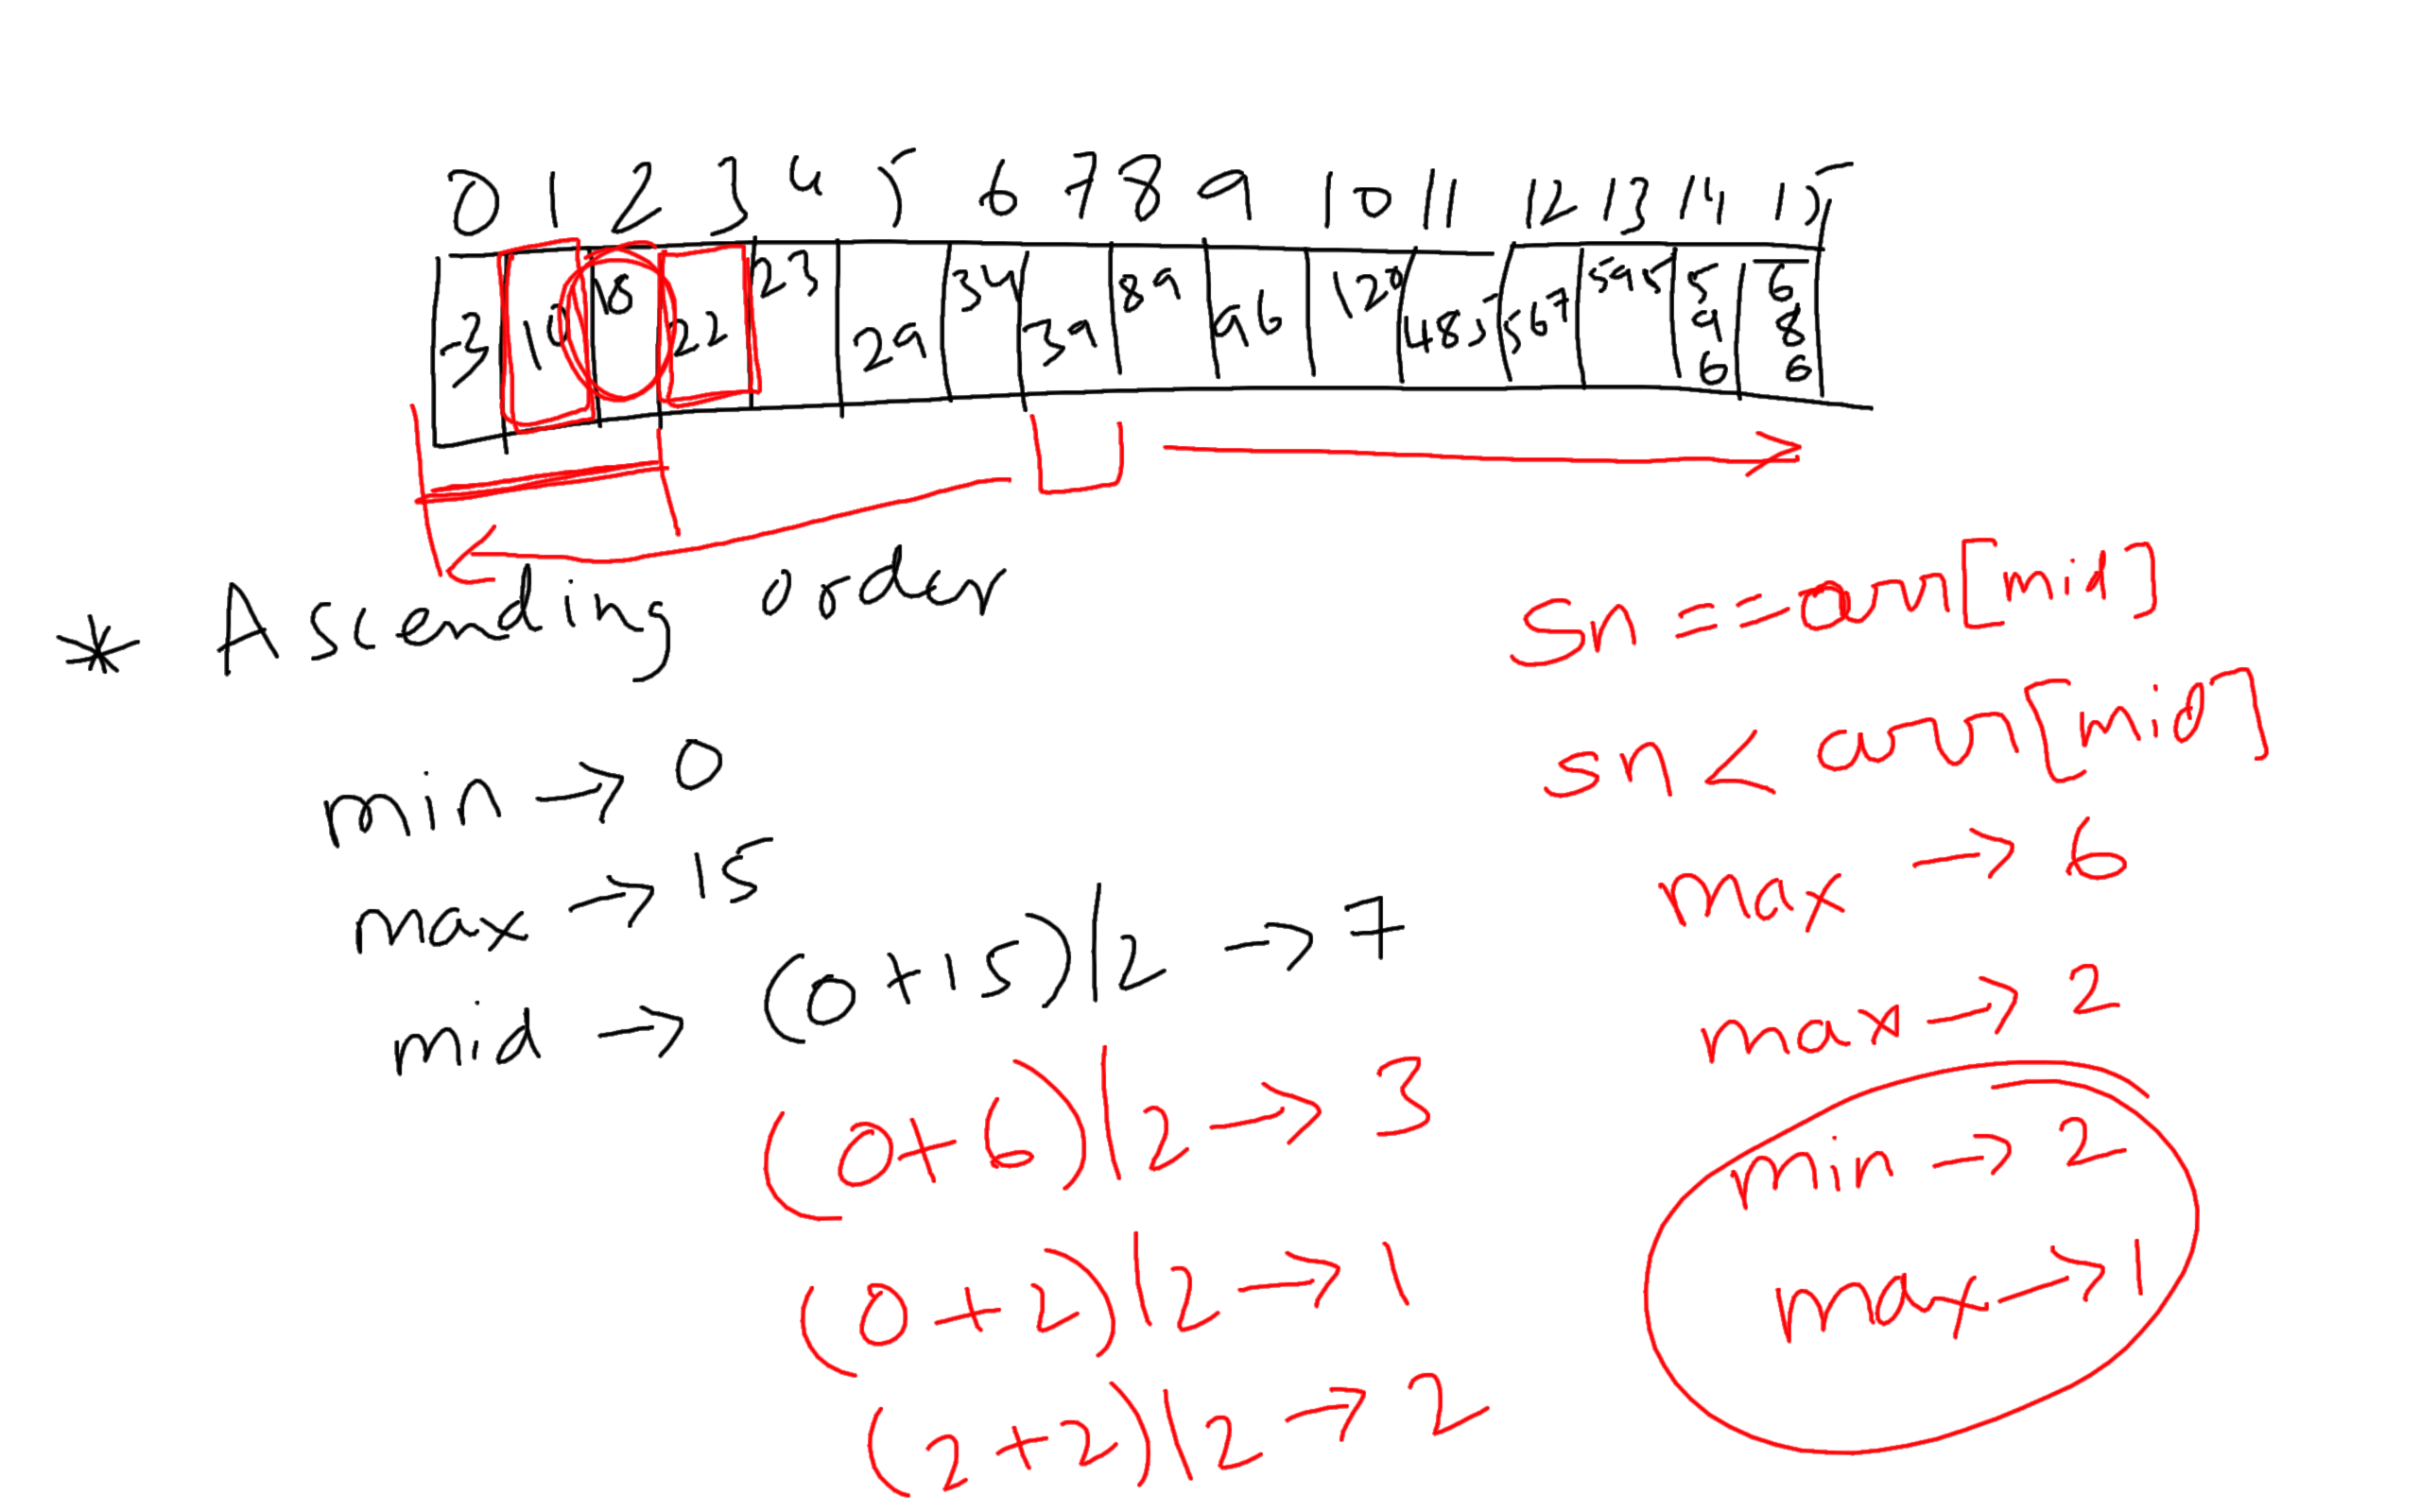 0 1 2 3 4 5 6 7 8 9 10 11 12 13 14 15
-3 10 18 22 23 29 34 39 89 96 120 485 567 595 596 686
* Ascending order
min → 0
max → 15
mid → (0+15)/2 → 7
(0+6)/2 → 3
(0+2)/2 → 1
(2+2)/2 → 2
Sn == arr[mid]
sn < arr[mid]
max → 6
max → 2
min → 2
max → 1